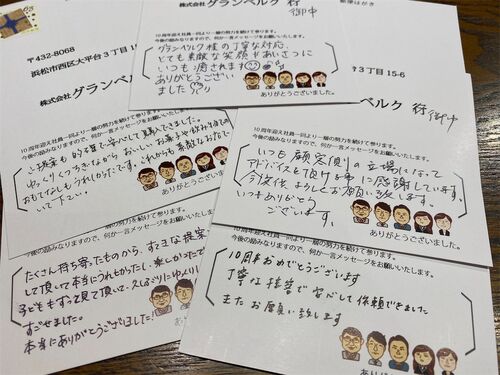 株式会社 グランベルク 行 御中
10周年迎え社員一同より一層の努力を続けて参ります。
今後の励みなりますので、何か一言メッセージをお願いいたします。
グランベルク様の丁寧な対応、
とても素敵な笑顔やあいさつに
いつも癒されます
ありがとうござい
ました
ありがとうございました。
郵便はがき
〒432-8068
浜松市西区大平台3丁目
株式会社 グラン
10周年迎え社員一同より一層の努力を続けて
今後の励みなりますので、何か一言メッセージ
ご提案も的確で安心して購入できました。
ゆっくりくつろぎながら おいしいお菓子や飲み物での
おもてなしもうれしかったです。これからも素敵なお店で
いて下さい。
3丁目 15-6
ベルク 行 御中
10周年迎え社員一同より一層の努力を続けて参ります。
今後の励みなりますので、何か一言メッセージをお願いいたします。
いつも顧客側の立場になって
アドバイスを頂ける事に感謝しています。
今後共、よろしくお願い致します。
いつもありがとう
ございます。
ありがとうございました。
10周年迎え社員一同より一層の努力を続けて参ります。
今後の励みなりますので、何か一言メッセージをお願いいたします。
たくさん持ち寄ったものから、すてきな提案を
して頂いて本当にうれしかったし、楽しかったです
子どももすって見て頂いて、久しぶりにゆっくり
すごせました。
本当にありがとうございました!
10周年迎え社員一同より一層の努力を続けて参ります。
今後の励みなりますので、何か一言メッセージをお願いいたします。
10周年おめでとうございます
丁寧な接客で安心して依頼できました
またお願い致します